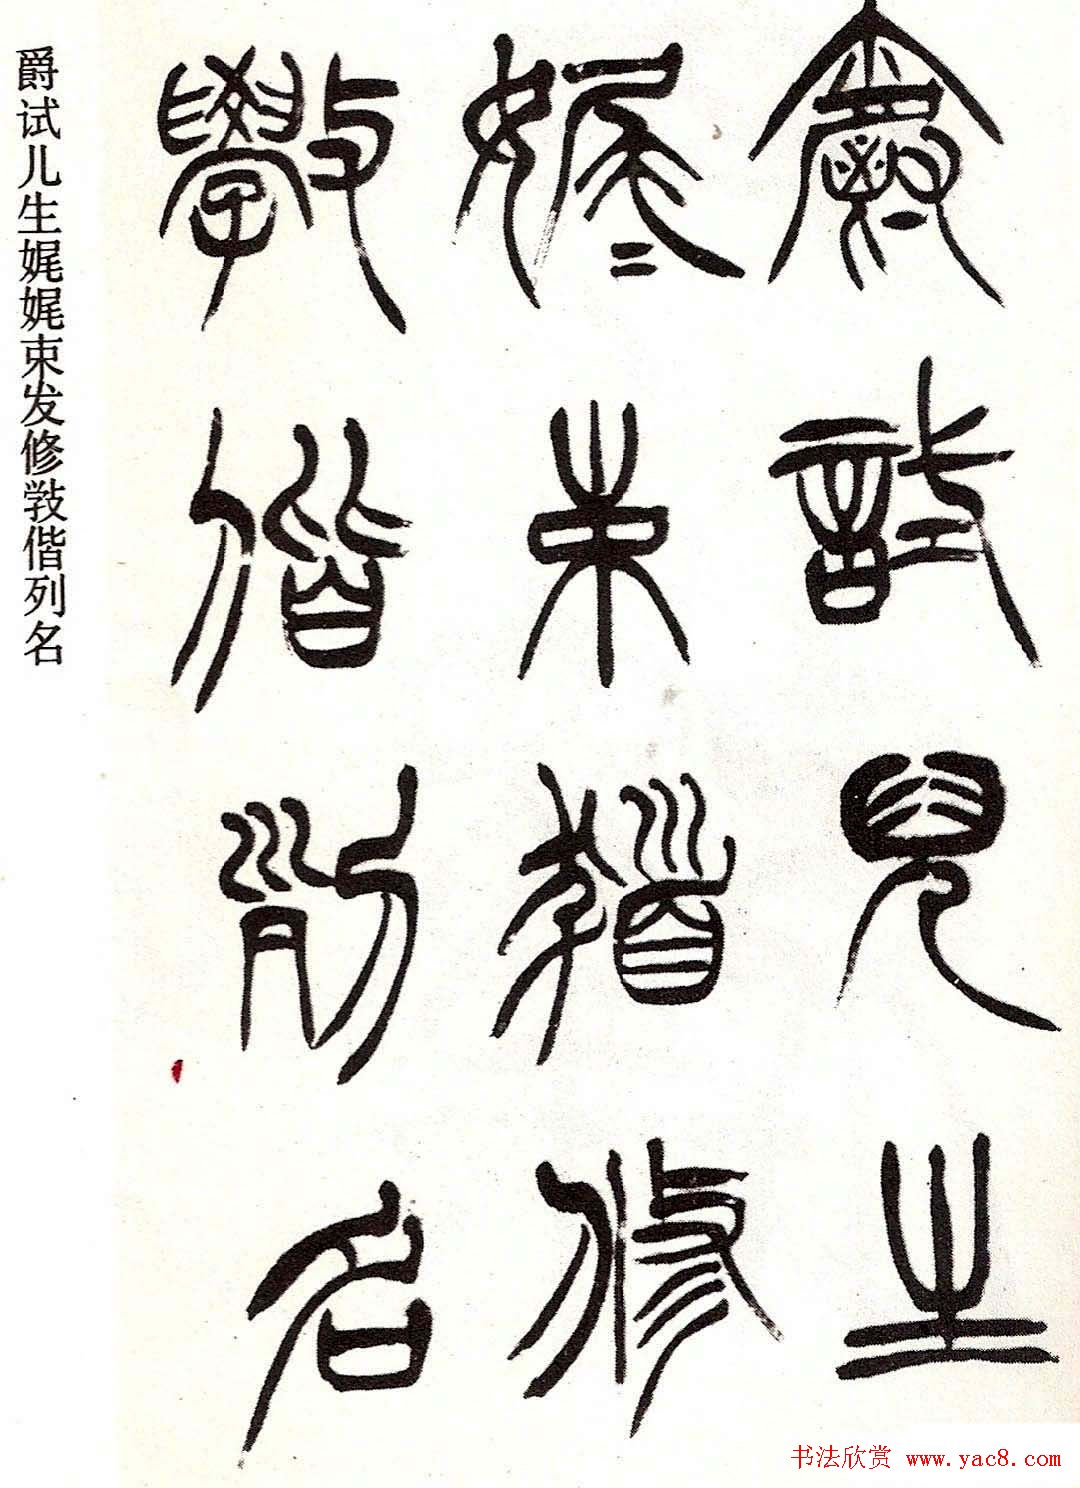 爵試兒生
娓〻束髮修
斆偕列名
爵试儿生娓娓束发修敩偕列名
书法欣赏 www.yac8.com